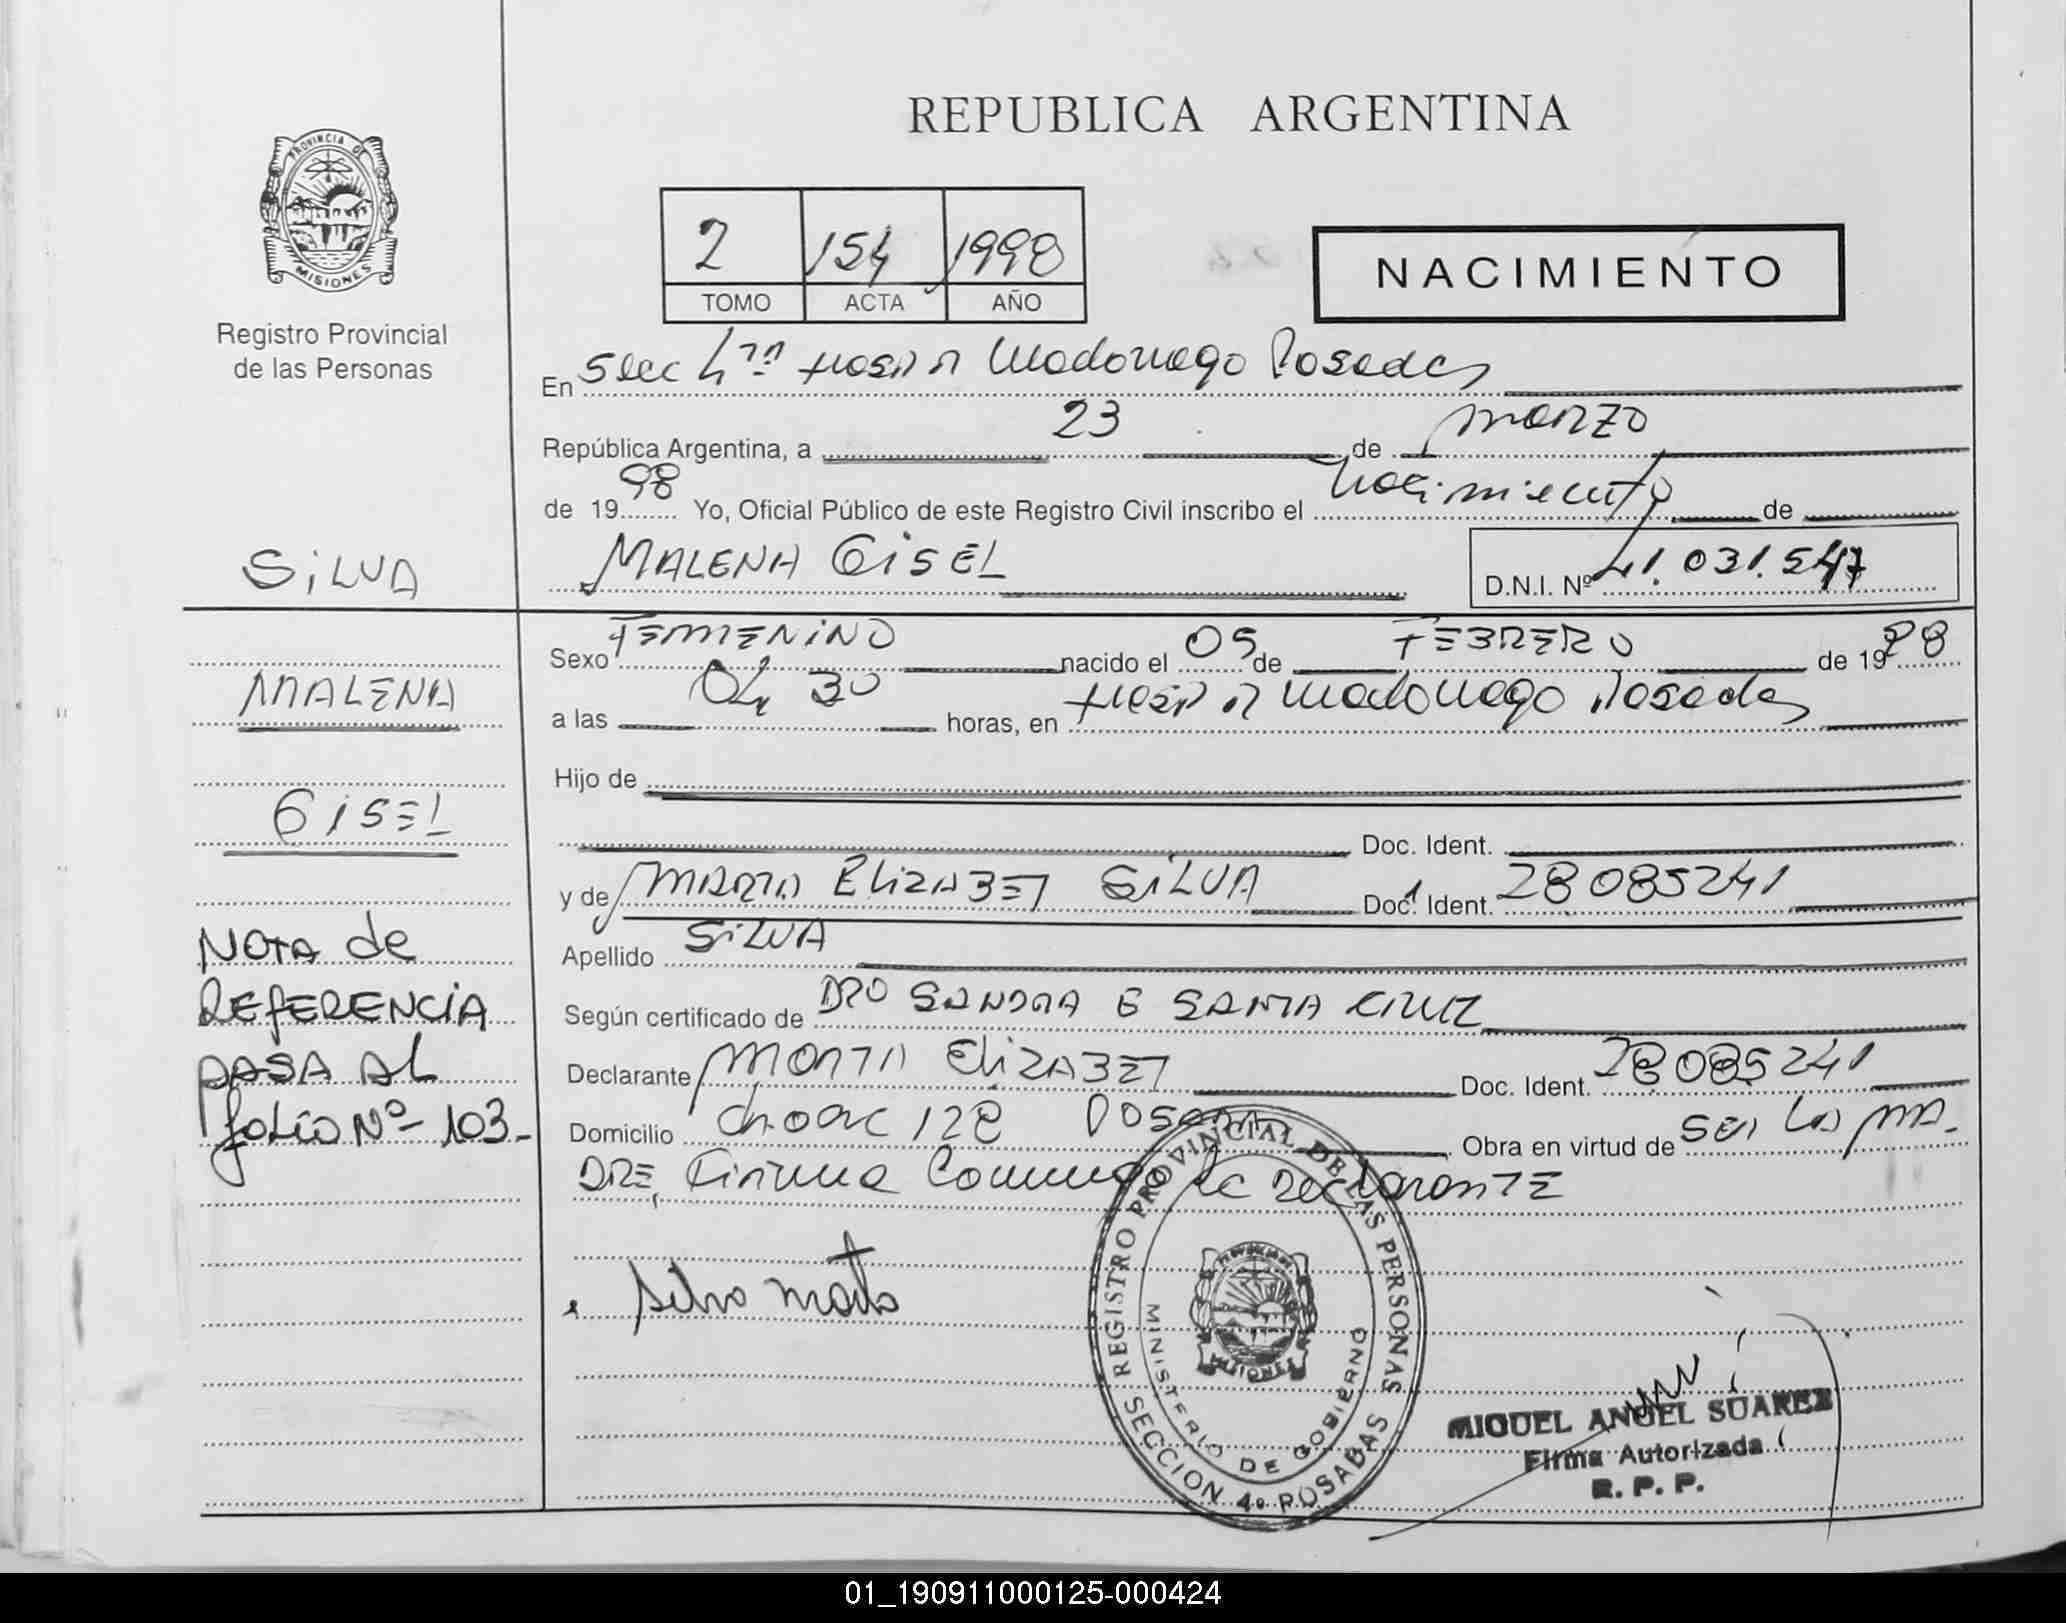 REPUBLICA ARGENTINA
PROVINCIA DE
MISIONES
Registro Provincial
de las Personas
2 154 1998
TOMO ACTA AÑO
NACIMIENTO
En Secc 4ta Hospir Madariaga Posadas
República Argentina, a 23 de marzo
de 1998 Yo, Oficial Público de este Registro Civil inscribo el nacimiento de
MALENA GISEL
D.N.I. Nº 41.031.547
SILVA
MALENA
GISEL
NOTA de
REFERENCIA
PASA AL
folio Nº 103-
Sexo FEMENINO nacido el 05 de FEBRERO de 1998
a las 04 30 horas, en Hospir Madariaga Posadas
Hijo de
Doc. Ident.
y de MARTA ELIZABET SILVA Doc. Ident. 28085241
Apellido SILVA
Según certificado de DRA SANDRA E SANTA CRUZ
Declarante MARTA ELIZABET Doc. Ident. 28085241
Domicilio 128 Posadas Obra en virtud de ser la MA-
DRE, Firma Conmigo la declarante
Silva Marta
REGISTRO PROVINCIAL DE LAS PERSONAS
MINISTERIO DE GOBIERNO
SECCION 4º POSADAS
MISIONES
MIGUEL ANGEL SUAREZ
Firma Autorizada
R. P. P.
01_190911000125-000424